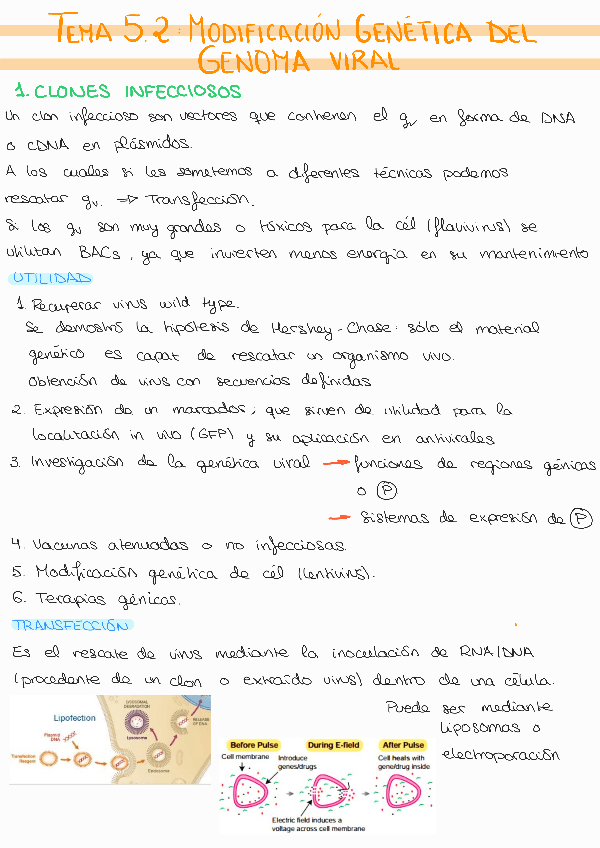 TEMA 5.2: MODIFICACIÓN GENÉTICA DEL
GENOMA VIRAL
1. CLONES INFECCIOSOS
Un clon infeccioso son vectores que contienen el gv en forma de DNA
o cDNA en plásmidos.
A los cuales si les sometemos a diferentes técnicas podemos
rescatar gv. => Transfección.
Si los gv son muy grandes o tóxicos para la cél (flavivirus) se
utilizan BACs, ya que invierten menos energía en su mantenimiento
UTILIDAD
1. Recuperar virus wild type.
Se demostró la hipótesis de Hershey-Chase: sólo el material
genético es capaz de rescatar un organismo vivo.
Obtención de virus con secuencias definidas
2. Expresión de un marcador, que sirven de utilidad para la
localización in vivo (GFP) y su aplicación en antivirales
3. Investigación de la genética viral → funciones de regiones génicas
o P
→ Sistemas de expresión de P
4. Vacunas atenuadas o no infecciosas.
5. Modificación genética de cél (lentivirus).
6. Terapias génicas.
TRANSFECCIÓN
Es el rescate de virus mediante la inoculación de RNA/DNA
(procedente de un clon o extraído virus) dentro de una célula.
Puede ser mediante
liposomas o
electroporación
Lipofection
Plasmid
DNA
Transfection
Reagent
Endosome
LYSOSOMAL
DEGRADATION
Lysosome
RELEASE
OF DNA
Before Pulse
During E-field
After Pulse
Cell membrane
Introduce
genes/drugs
Cell heals with
gene/drug inside
Electric field induces a
voltage across cell membrane